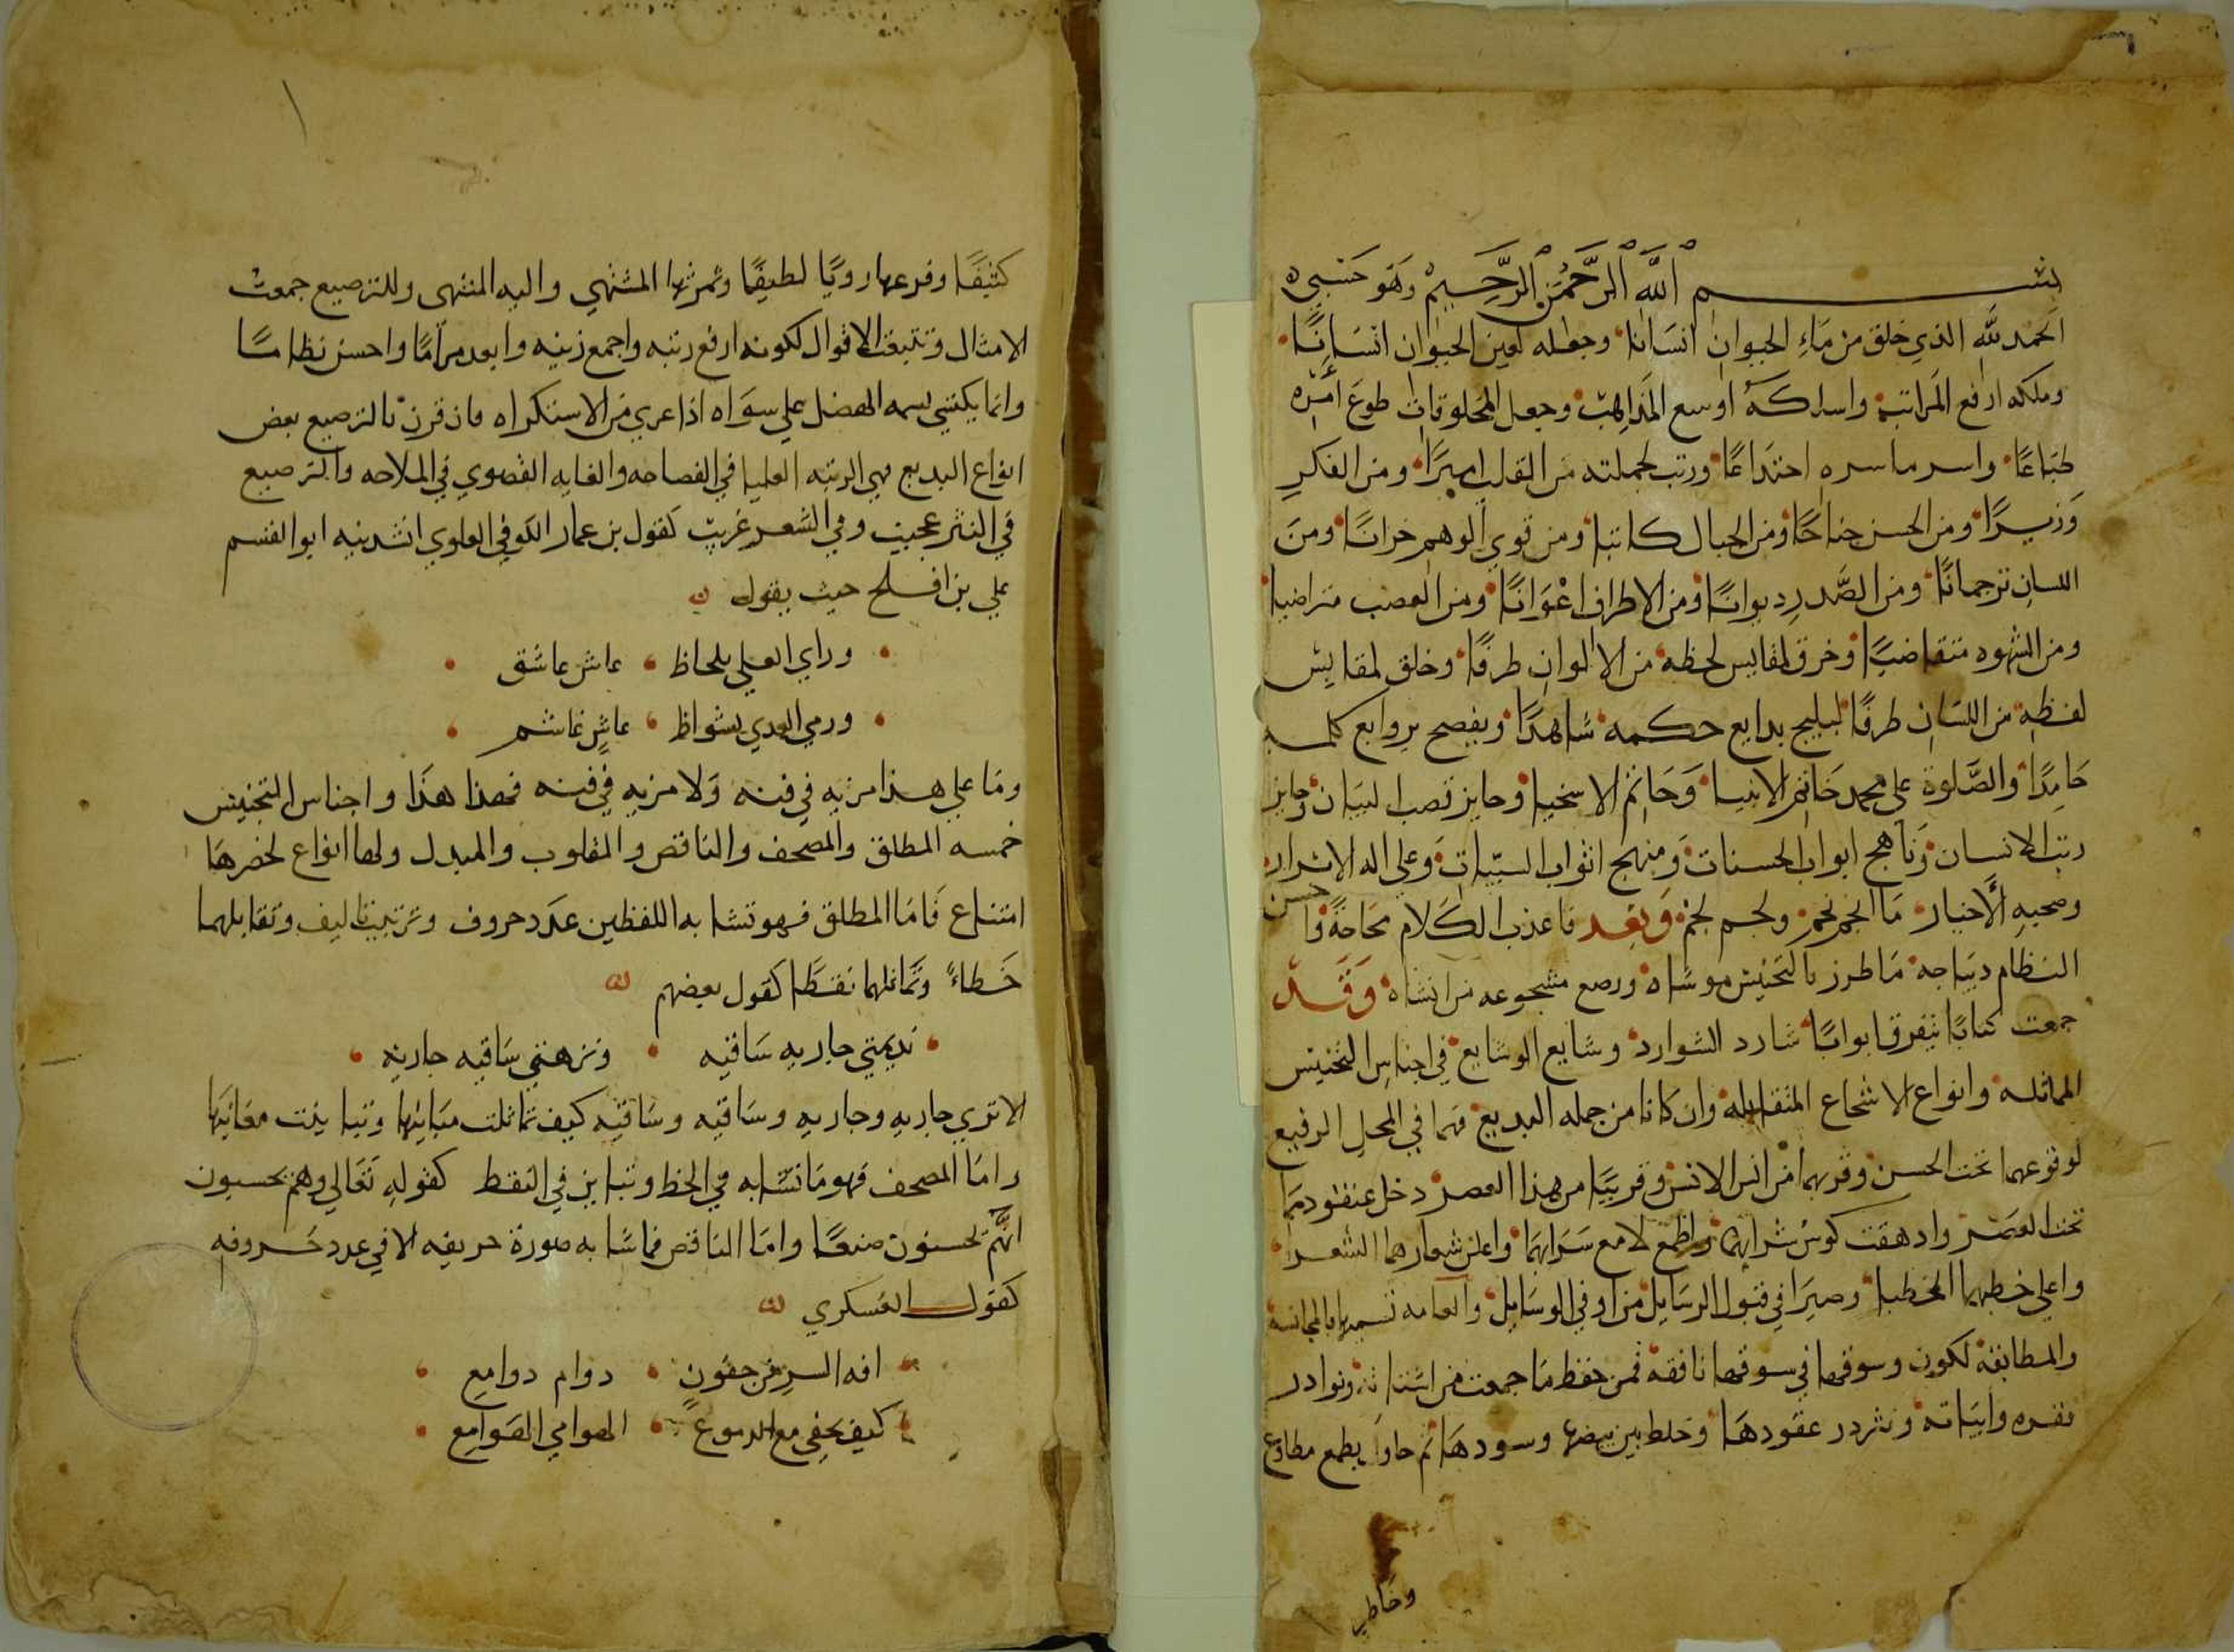 بسم الله الرحمن الرحيم وهو حسبي
الحمد لله الذي خلق من ماء الحيوان انسانا وجعله لعين الحيوان انسانا
وملكه ارفع المراتب واسلكه اوسع المذاهب وجعل المخلوقات طوع امره
طباعا واسر ما سره اختداعا ورتب لجملته من القلب اميرا ومن الفكر
وزيرا ومن الحسن جناحا ومن الخيال كاتبا ومن قوي الوهم خزانا ومن
اللسان ترجمانا ومن الصدر ديوانا ومن الاطراف اعوانا ومن الغضب متراضيا
ومن الشهوه متقاضيا وخرق لمقايس لحظه من الالوان طرفا وخلق لمقايس
لفظه من اللسان طرفا ليلج بدايع حكمه شاهدا ويفصح بروايع كلمه
حامدا والصلوة على محمد خاتم الانبيا وحاتم الاسخيا وحايز قصب البيان وحايز
رتب الانسان وناهج ابواب الحسنات ومنهج اثواب السيات وعلى اله الابرار
وصحبه الاخيار ما انجم نجم ولجم لجم وبعد فاعذب الكلام مجاجة واحسن
النظام ديباجه ما طرز بالتجنيس موشاه ورصع مسجوعه من انشاه وقد
جمعت كتابا يتفرق ابوابا شارد الشوارد وشايع الوشايع في اجناس التجنيس
المماثله وانواع الاسجاع المتقابله وان كانا من جمله البديع فهما في المحل الرفيع
لوقوعهما تحت الحسن وقربهما من انس الانس وقريبا من هذا العصر دخل عنقودهما
تحت العصر وادهقت كوس شرابهما واطمع لامع سرابهما واعلن شعارهما الشعرا
واعلى خطبهما الخطبا وصيرا في قبول الرسايل من اوفي الوسايل والعامه تسميها بالمجانسه
والمطابقه لكون وسوقها في سوقها نافقه فمن حفظ ما جمعت من اشتاته ونوادر
نقره وابياته ونثر در عقودها وخلط بين بيضها وسودها ثم حاول بطمع مطاوع
وخاطر
كثيفا وفرعها رويا لطيفا وثمرتها المشتهي واليه المنتهى وللترصيع جمعت
الامثال وتتبعت الاقوال لكونه ارفع رتبه واجمع زينه وابعد مراما واحسن نظاما
وانما يكتسي سمه الفضل على سواه اذا عري من الاستكراه فان قرن بالترصيع بعض
انواع البديع فهي الرتبه العليا في الفصاحه والغايه القصوي في الملاحه والترصيع
في النثر عجيب وفي الشعر غريب كقول بن عمار الكوفي العلوي انشدنيه ابو القسم
علي بن افلح حيث يقول
وراي العلي بلحاظ عاش عاشق
ورمي العدي بشواظ عاش غاشم
وما علي هذا مزيه في فنه ولا مزيه في فنه فهذا هذا واجناس التجنيس
خمسه المطلق والمصحف والناقص والمقلوب والمبدل ولها انواع لحصرها
امتناع فاما المطلق فهو تشابه اللفظين عدد حروف وترتيب تاليف وتقابلهما
خطا وتماثلهما نقطا كقول بعضهم
نديمتي جاريه ساقيه ونزهتي ساقيه جاريه
الا تري جاريه وجاريه وساقيه وساقيه كيف تماثلت مبانيها وتباينت معانيها
واما المصحف فهو ما تشابه في الخط وتباين في النقط كقوله تعالي وهم يحسبون
انهم يحسنون صنعا واما الناقص فما شابه صورة حريفه الا في عدد حروفه
كقول العسكري
افه السر من جفون دوام دوامع
كيف يخفى مع الدموع الهوامي الهوامع